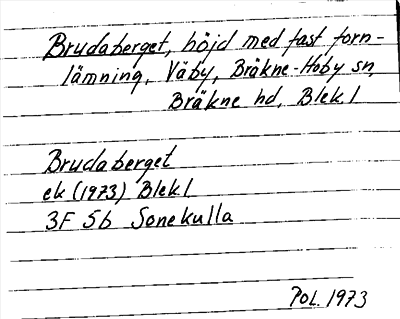 Brudaberget, höjd med fast forn-
lämning, Väby, Bräkne-Hoby sn,
Bräkne hd, Blek. l
Brudaberget
ek (1973) Blek. l
3F 5b Sonekulla
PoL. 1973